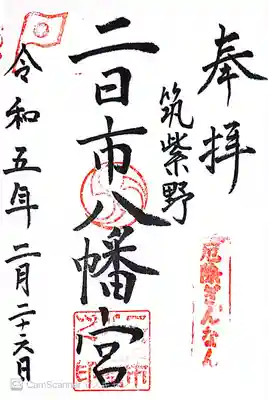 奉拝
筑紫野
二日市八幡宮
令和五年二月二十六日
厄除ぎんなん
CamScanner